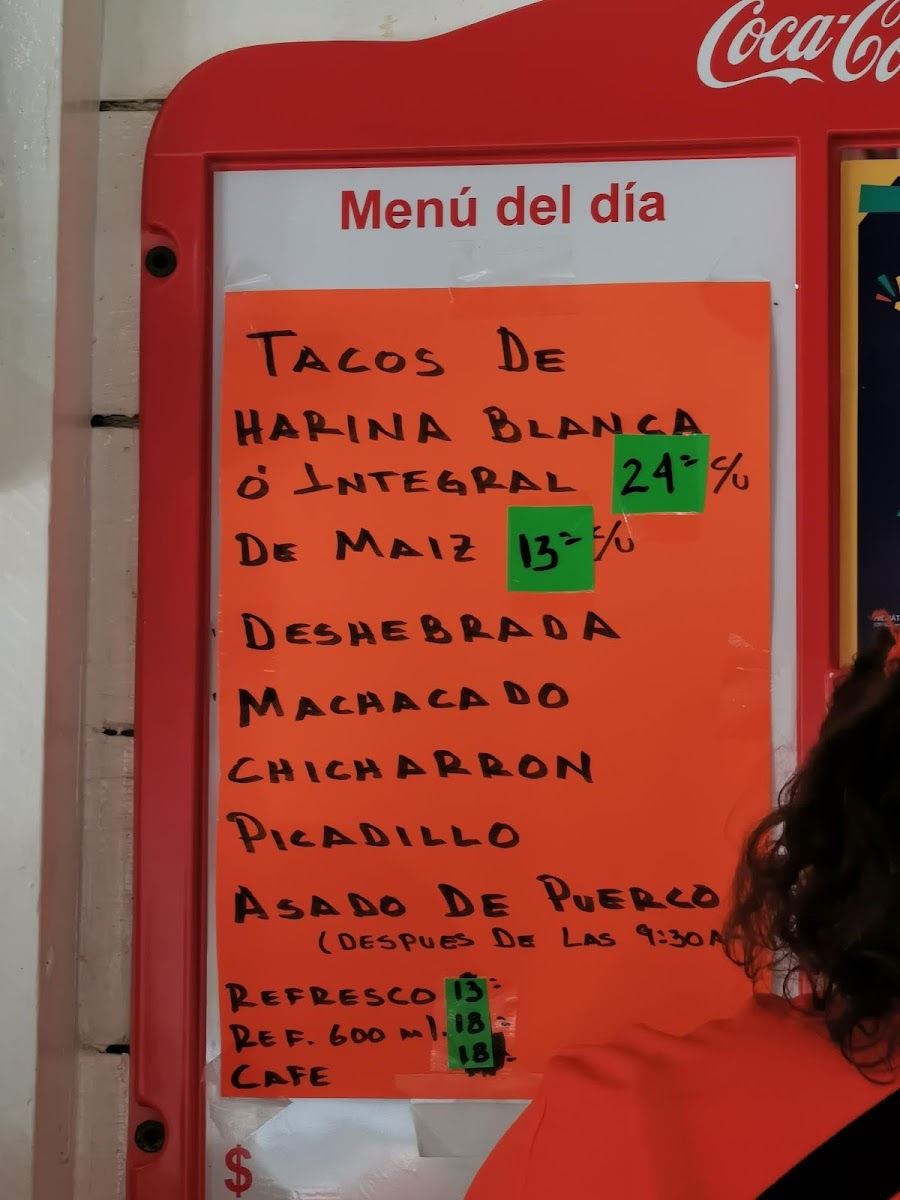 Coca-Co
Menú del día
TACOS DE
HARINA BLANCA
Ó INTEGRAL 24= c/u
DE MAIZ 13= c/u
DESHEBRADA
MACHACADO
CHICHARRON
PICADILLO
ASADO DE PUERCO
(DESPUES DE LAS 9:30A
REFRESCO 13=
REF. 600 ml. 18=
CAFE 18=
$